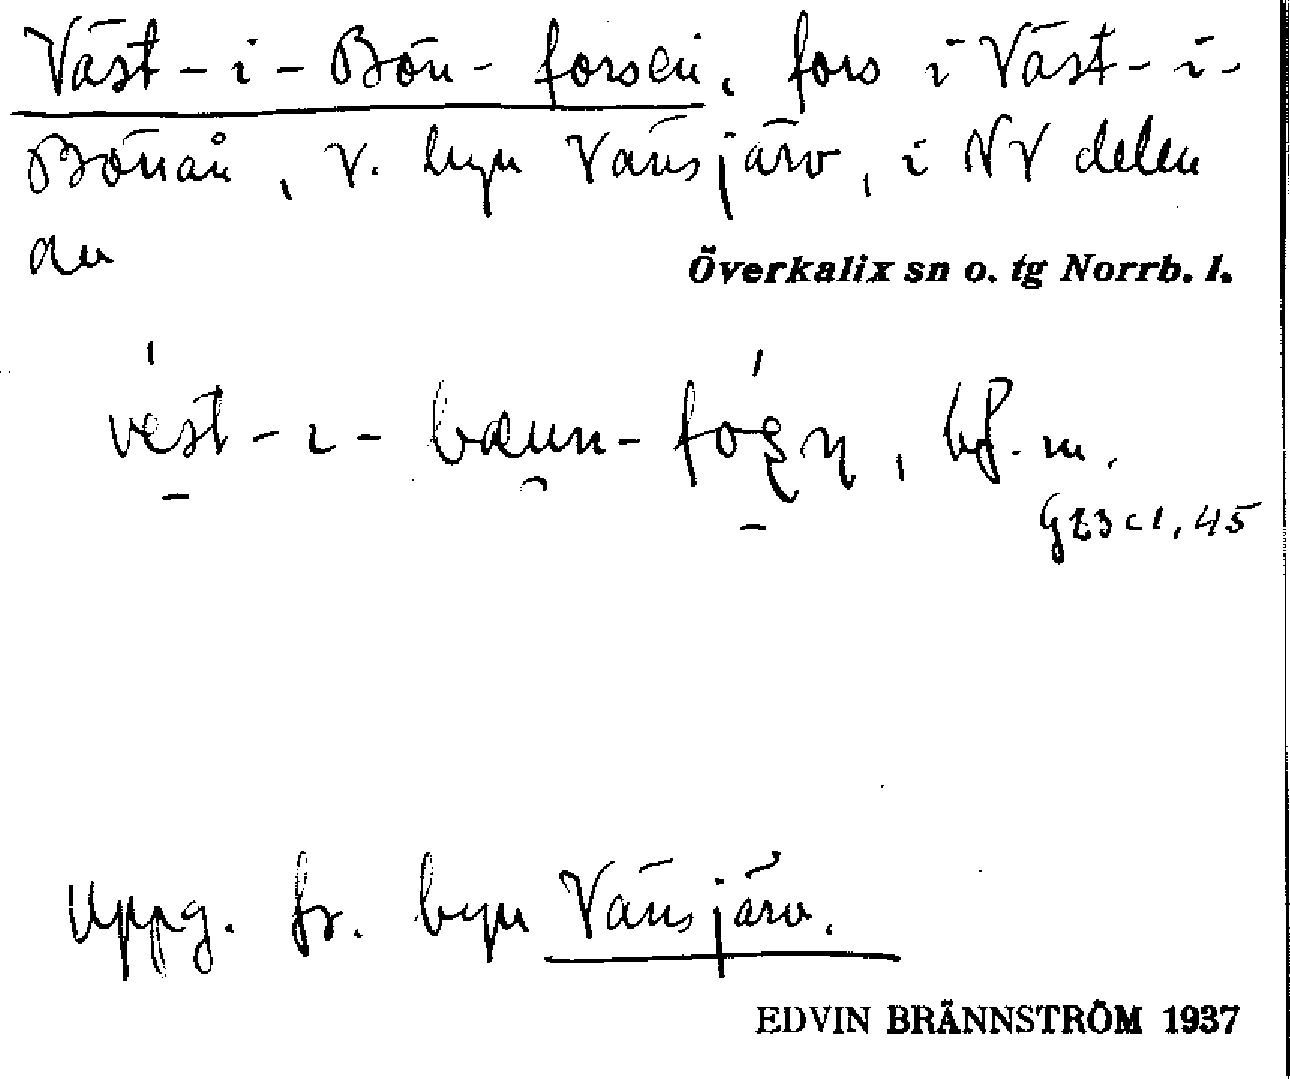 Väst-i-Bön-forsen, fors i Väst-i-
Bönån, V. byn Vänsjärv, i NV delen
av
Överkalix sn o. tg Norrb. l.
vest-ı-bæun-
bf. m.
Uppg. fr. byn Vänsjärv.
EDVIN BRÄNNSTRÖM 1937